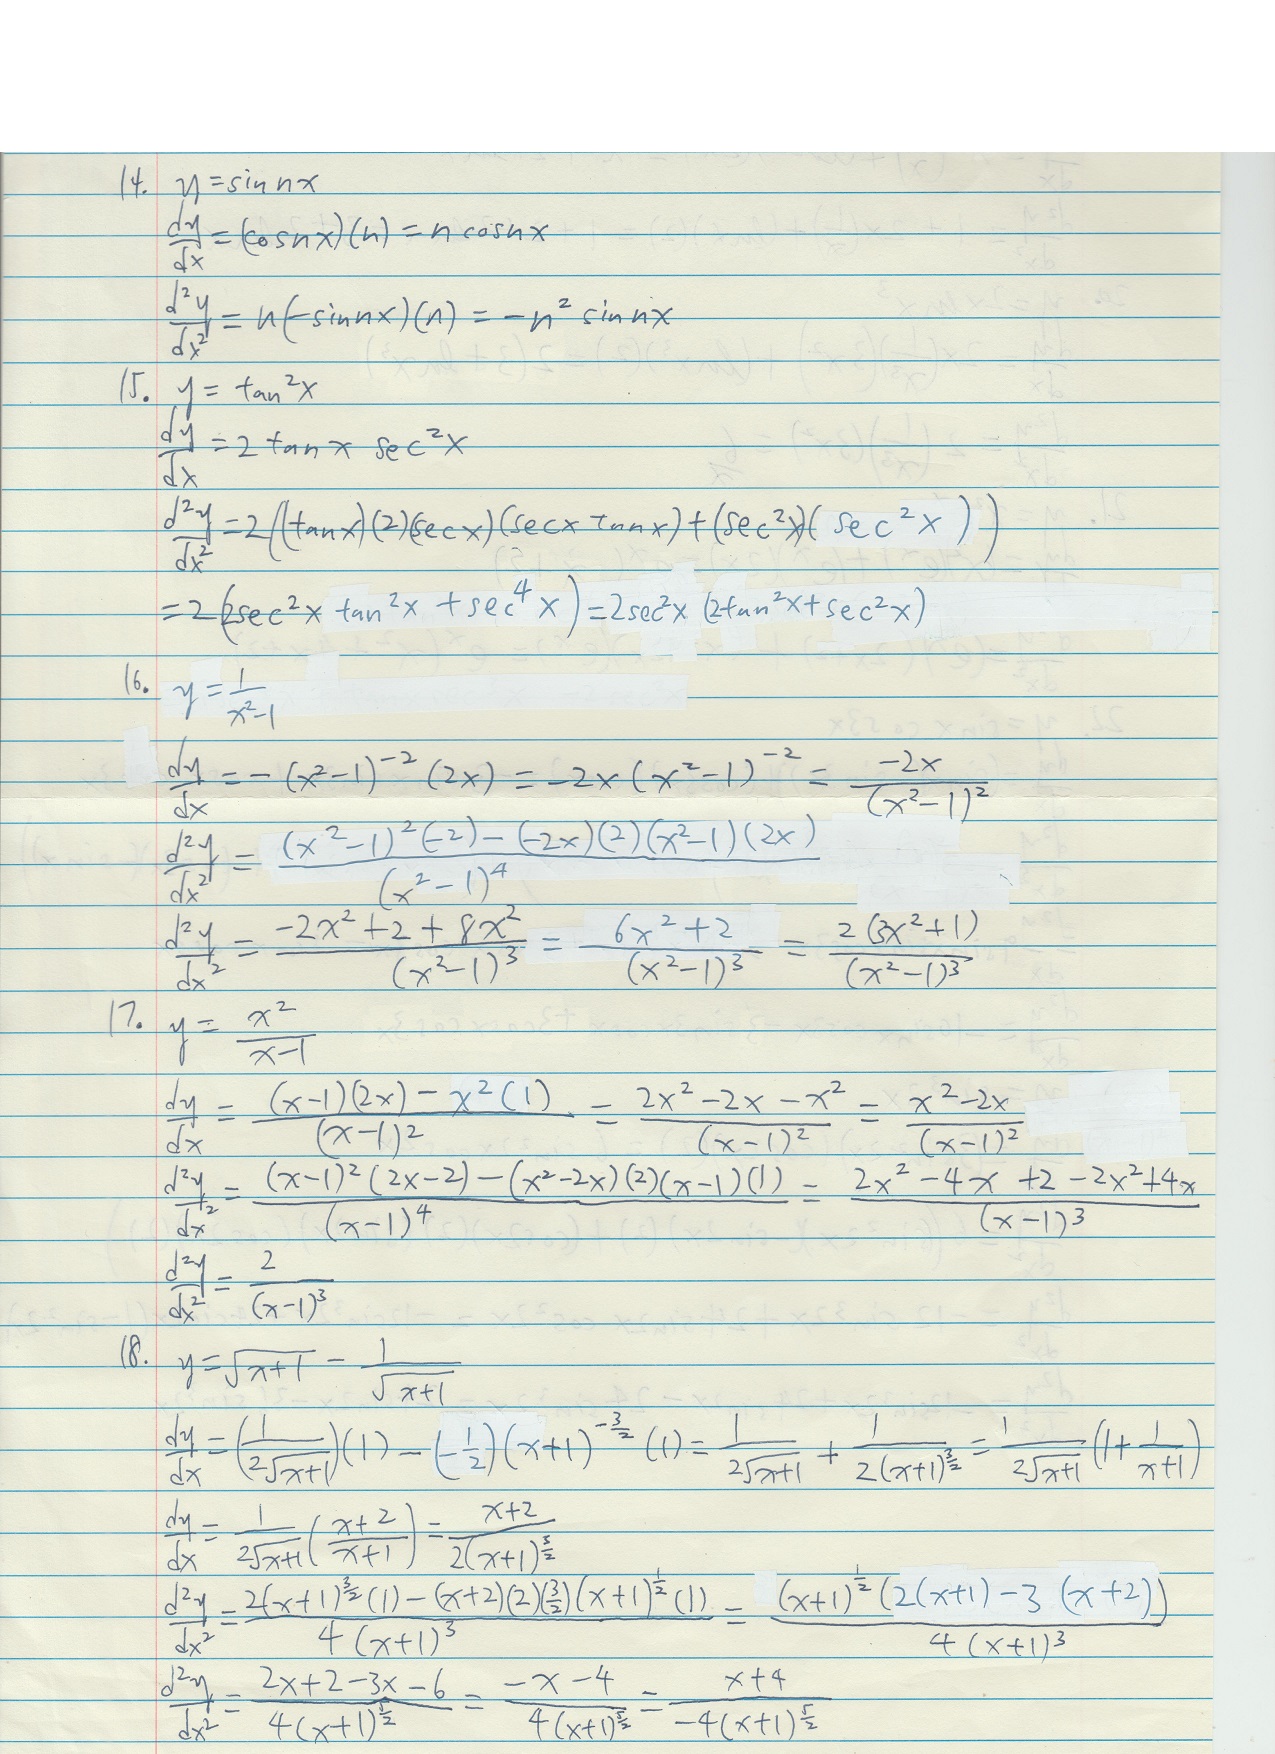 14. y = sin nx
dy/dx = (cos nx)(n) = n cos nx
d²y/dx² = n(-sin nx)(n) = -n² sin nx
15. y = tan²x
dy/dx = 2 tan x sec²x
d²y/dx² = 2((tan x)(2)(sec x)(sec x tan x) + (sec²x)(sec²x))
= 2(2sec²x tan²x + sec⁴x) = 2sec²x (2tan²x + sec²x)
16. y = 1/(x²-1)
dy/dx = -(x²-1)⁻²(2x) = -2x(x²-1)⁻² = -2x/(x²-1)²
d²y/dx² = ((x²-1)²(-2) - (-2x)(2)(x²-1)(2x))/(x²-1)⁴
d²y/dx² = (-2x²+2+8x²)/(x²-1)³ = (6x²+2)/(x²-1)³ = 2(3x²+1)/(x²-1)³
17. y = x²/(x-1)
dy/dx = ((x-1)(2x) - x²(1))/(x-1)² = (2x²-2x-x²)/(x-1)² = (x²-2x)/(x-1)²
d²y/dx² = ((x-1)²(2x-2) - (x²-2x)(2)(x-1)(1))/(x-1)⁴ = (2x²-4x+2-2x²+4x)/(x-1)³
d²y/dx² = 2/(x-1)³
18. y = √(x+1) - 1/√(x+1)
dy/dx = (1/(2√(x+1)))(1) - (-1/2)(x+1)^(-3/2)(1) = 1/(2√(x+1)) + 1/(2(x+1)^(3/2)) = 1/(2√(x+1)) (1 + 1/(x+1))
dy/dx = 1/(2√(x+1)) ((x+2)/(x+1)) = (x+2)/(2(x+1)^(3/2))
d²y/dx² = (2(x+1)^(3/2)(1) - (x+2)(2)(3/2)(x+1)^(1/2)(1))/(4(x+1)³) = ((x+1)^(1/2)(2(x+1) - 3(x+2)))/(4(x+1)³)
d²y/dx² = (2x+2-3x-6)/(4(x+1)^(5/2)) = (-x-4)/(4(x+1)^(5/2)) = (x+4)/(-4(x+1)^(5/2))